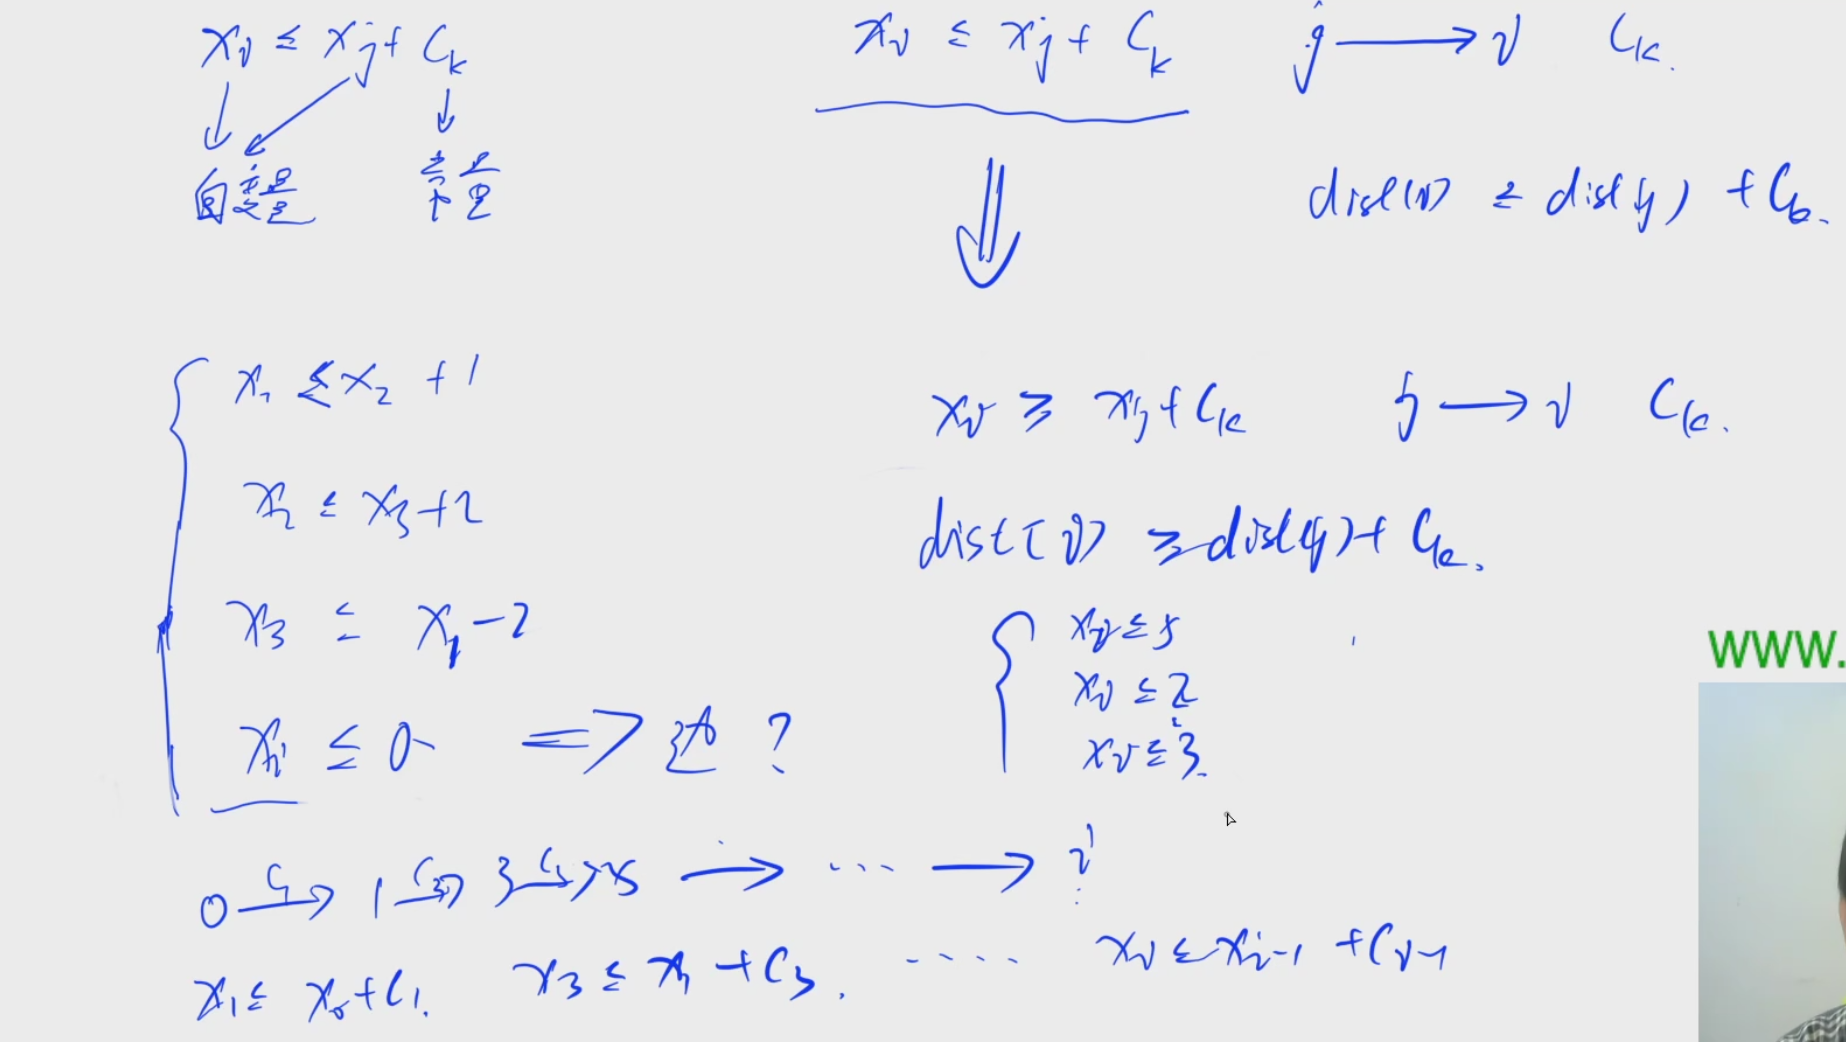 xᵢ ≤ xⱼ + Cₖ
自变量 常量
xᵢ ≤ xⱼ + Cₖ
j → i Cₖ.
dist(i) ≤ dist(j) + Cₖ.
x₁ ≤ x₂ + 1
x₂ ≤ x₃ + 2
x₃ ≤ x₁ - 2
≤ 0 ⇒ ?
xᵢ ≥ xⱼ + Cₖ j → i Cₖ.
dist(i) ≥ dist(j) + Cₖ.
xᵢ ≤ 5
xᵢ ≤ 2
xᵢ ≤ 3.
WWW.
0 → 1 → 3 → 5 → ... → i
x₁ ≤ x₀ + C₁. x₃ ≤ x₁ + C₃. .... xᵢ ≤ xᵢ₋₁ + Cᵢ₋₁